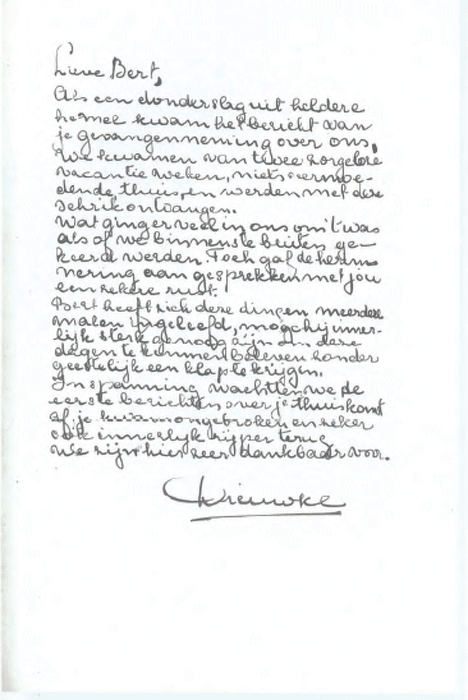 Lieve Bert,
Als een donderslag uit heldere
hemel kwam het bericht van
je gevangenneming over ons,
We kwamen van twee zorgeloze
vacantie weken, niets vermoe-
dende, thuis, en werden met deze
schrik ontvangen.
Wat ging er veel in ons om 't was
als of we binnenste buiten ge-
keerd werden. Toch gaf de herin-
nering aan gesprekken met jou
een zekere rust.
Bert heeft zich deze dingen meerdere
malen ingeleefd, mag hij inner-
lijk sterk genoeg zijn om deze
dagen te kunnen beleven zonder
geestelijk een klap te krijgen.
In spanning wachtten we de
eerste berichten over je thuiskomst
af, je kwam ongebroken en zeker
ook innerlijk rijper terug
We zijn hier zeer dankbaar voor.